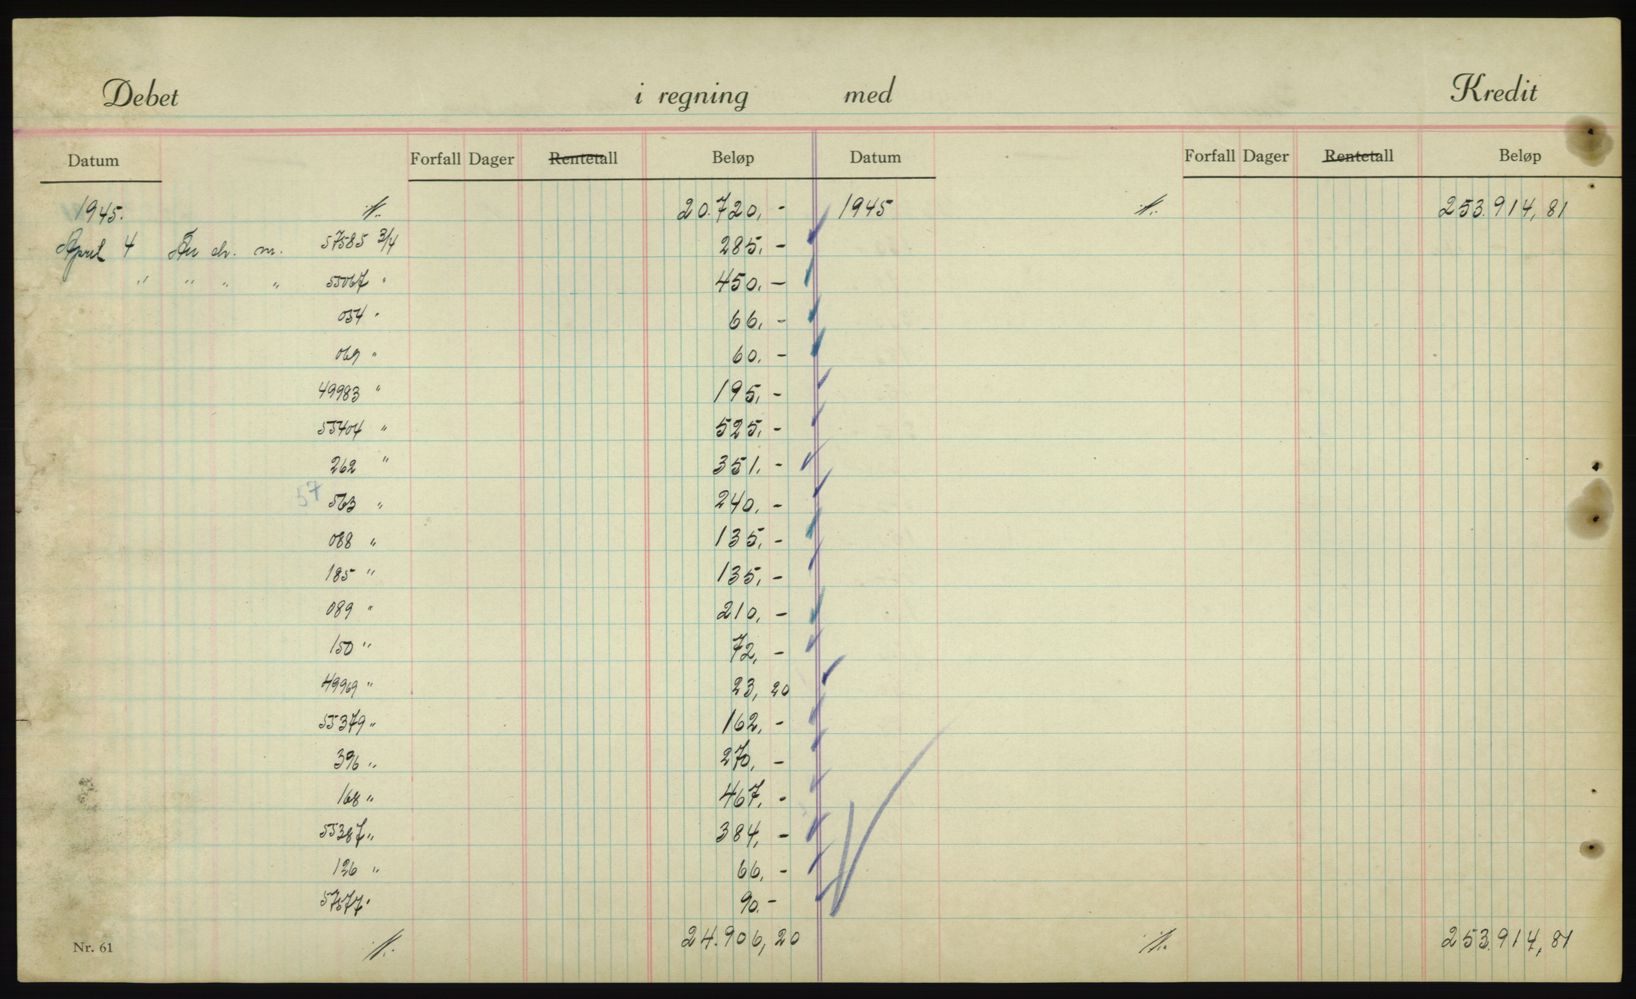 Debet i regning med Kredit
Datum Forfall Dager Rentetall Beløp Datum Forfall Dager Rentetall Beløp
1945. 20.720,- 1945 253.914,81
April 4 57585 3/4 285,-
" " " " 55067 " 450,-
054 " 66,-
069 " 60,-
49983 " 195,-
55404 " 525,-
262 " 351,-
57 563 " 240,-
088 " 135,-
185 " 135,-
089 " 210,-
150 " 72,-
49969 " 23,20
55379 " 162,-
396 " 270,-
168 " 467,-
55387 " 384,-
126 " 66,-
57577 " 90,-
24.906,20 253.914,81
Nr. 61